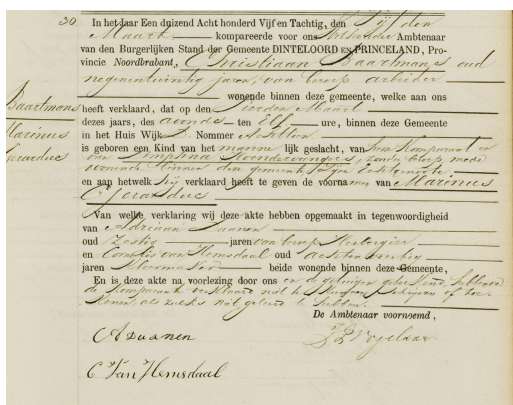 30 In het jaar Een duizend Acht honderd Vijf en Tachtig, den Vijfden
Maart kompareerde voor ons Ambtenaar
van den Burgerlijken Stand der Gemeente DINTELOORD EN PRINCELAND, Pro-
vincie Noordbrabant, Christiaan Baartmans oud
negenentwintig jaren, van beroep arbeider
wonende binnen deze gemeente, welke aan ons
Baartmans
Marinus
Gerardus
heeft verklaard, dat op den Vierden Maart
dezes jaars, des avonds ten Elf ure, binnen deze Gemeente
in het Huis Wijk Nommer Achttien
is geboren een Kind van het mannelijk geslacht, van hem Komparant en
van Dimphna zonder beroep mede
wonende binnen deze gemeente zijne Echtgenoote
en aan hetwelk hij verklaard heeft te geven de voornamen van Marinus
Gerardus
Van welke verklaring wij deze akte hebben opgemaakt in tegenwoordigheid
van Adriaan Aanen
oud Zestig jaren van beroep Herbergier
en Cornelis van Hemsdaal oud Achtenveertig
jaren beide wonende binnen deze Gemeente,
En is deze akte na voorlezing door ons en de getuigen geteekend, hebbende
de Komparant verklaard niet te kunnen schrijven of tee-
kenen, als zulks niet geleerd te hebben.
De Ambtenaar voornoemd,
A Aanen
C Van Hemsdaal